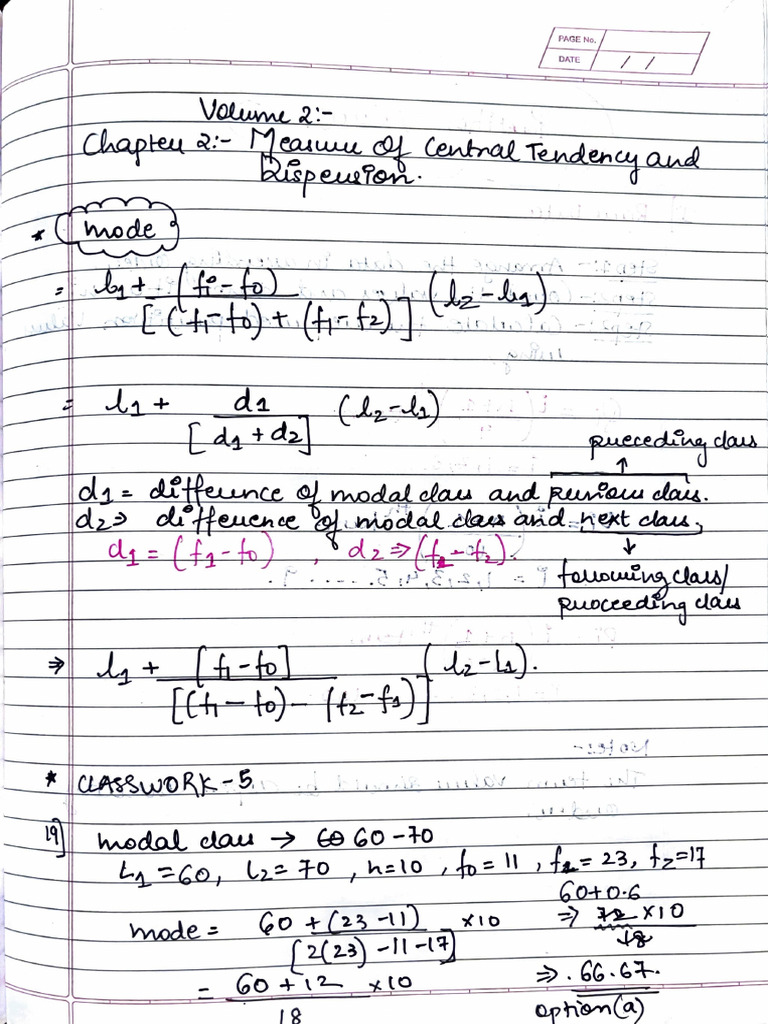 PAGE No.
DATE / /
Volume 2:-
Chapter 2:- Measure Of Central Tendency and
Dispersion.
* mode
= l1 + (f1 - f0) / [(f1 - f0) + (f1 - f2)] (l2 - l1)
= l1 + d1 / [d1 + d2] (l2 - l1)
preceeding class
d1 = difference of modal class and previous class.
d2 ⇒ difference of modal class and next class,
d1 = (f1 - f0) , d2 ⇒ (f1 - f2).
following class/
proceeding class
⇒ l1 + [f1 - f0] / [(f1 - f0) - (f2 - f1)] (l2 - l1).
* CLASSWORK - 5
19] modal class → 60 - 70
L1 = 60, l2 = 70, h = 10, f0 = 11, f1 = 23, f2 = 17
mode = 60 + (23 - 11) / [2(23) - 11 - 17] × 10
60 + 0.6
⇒ 72 × 10 / 18
= 60 + 12 / 18 × 10
⇒ . 66.67.
option (a)